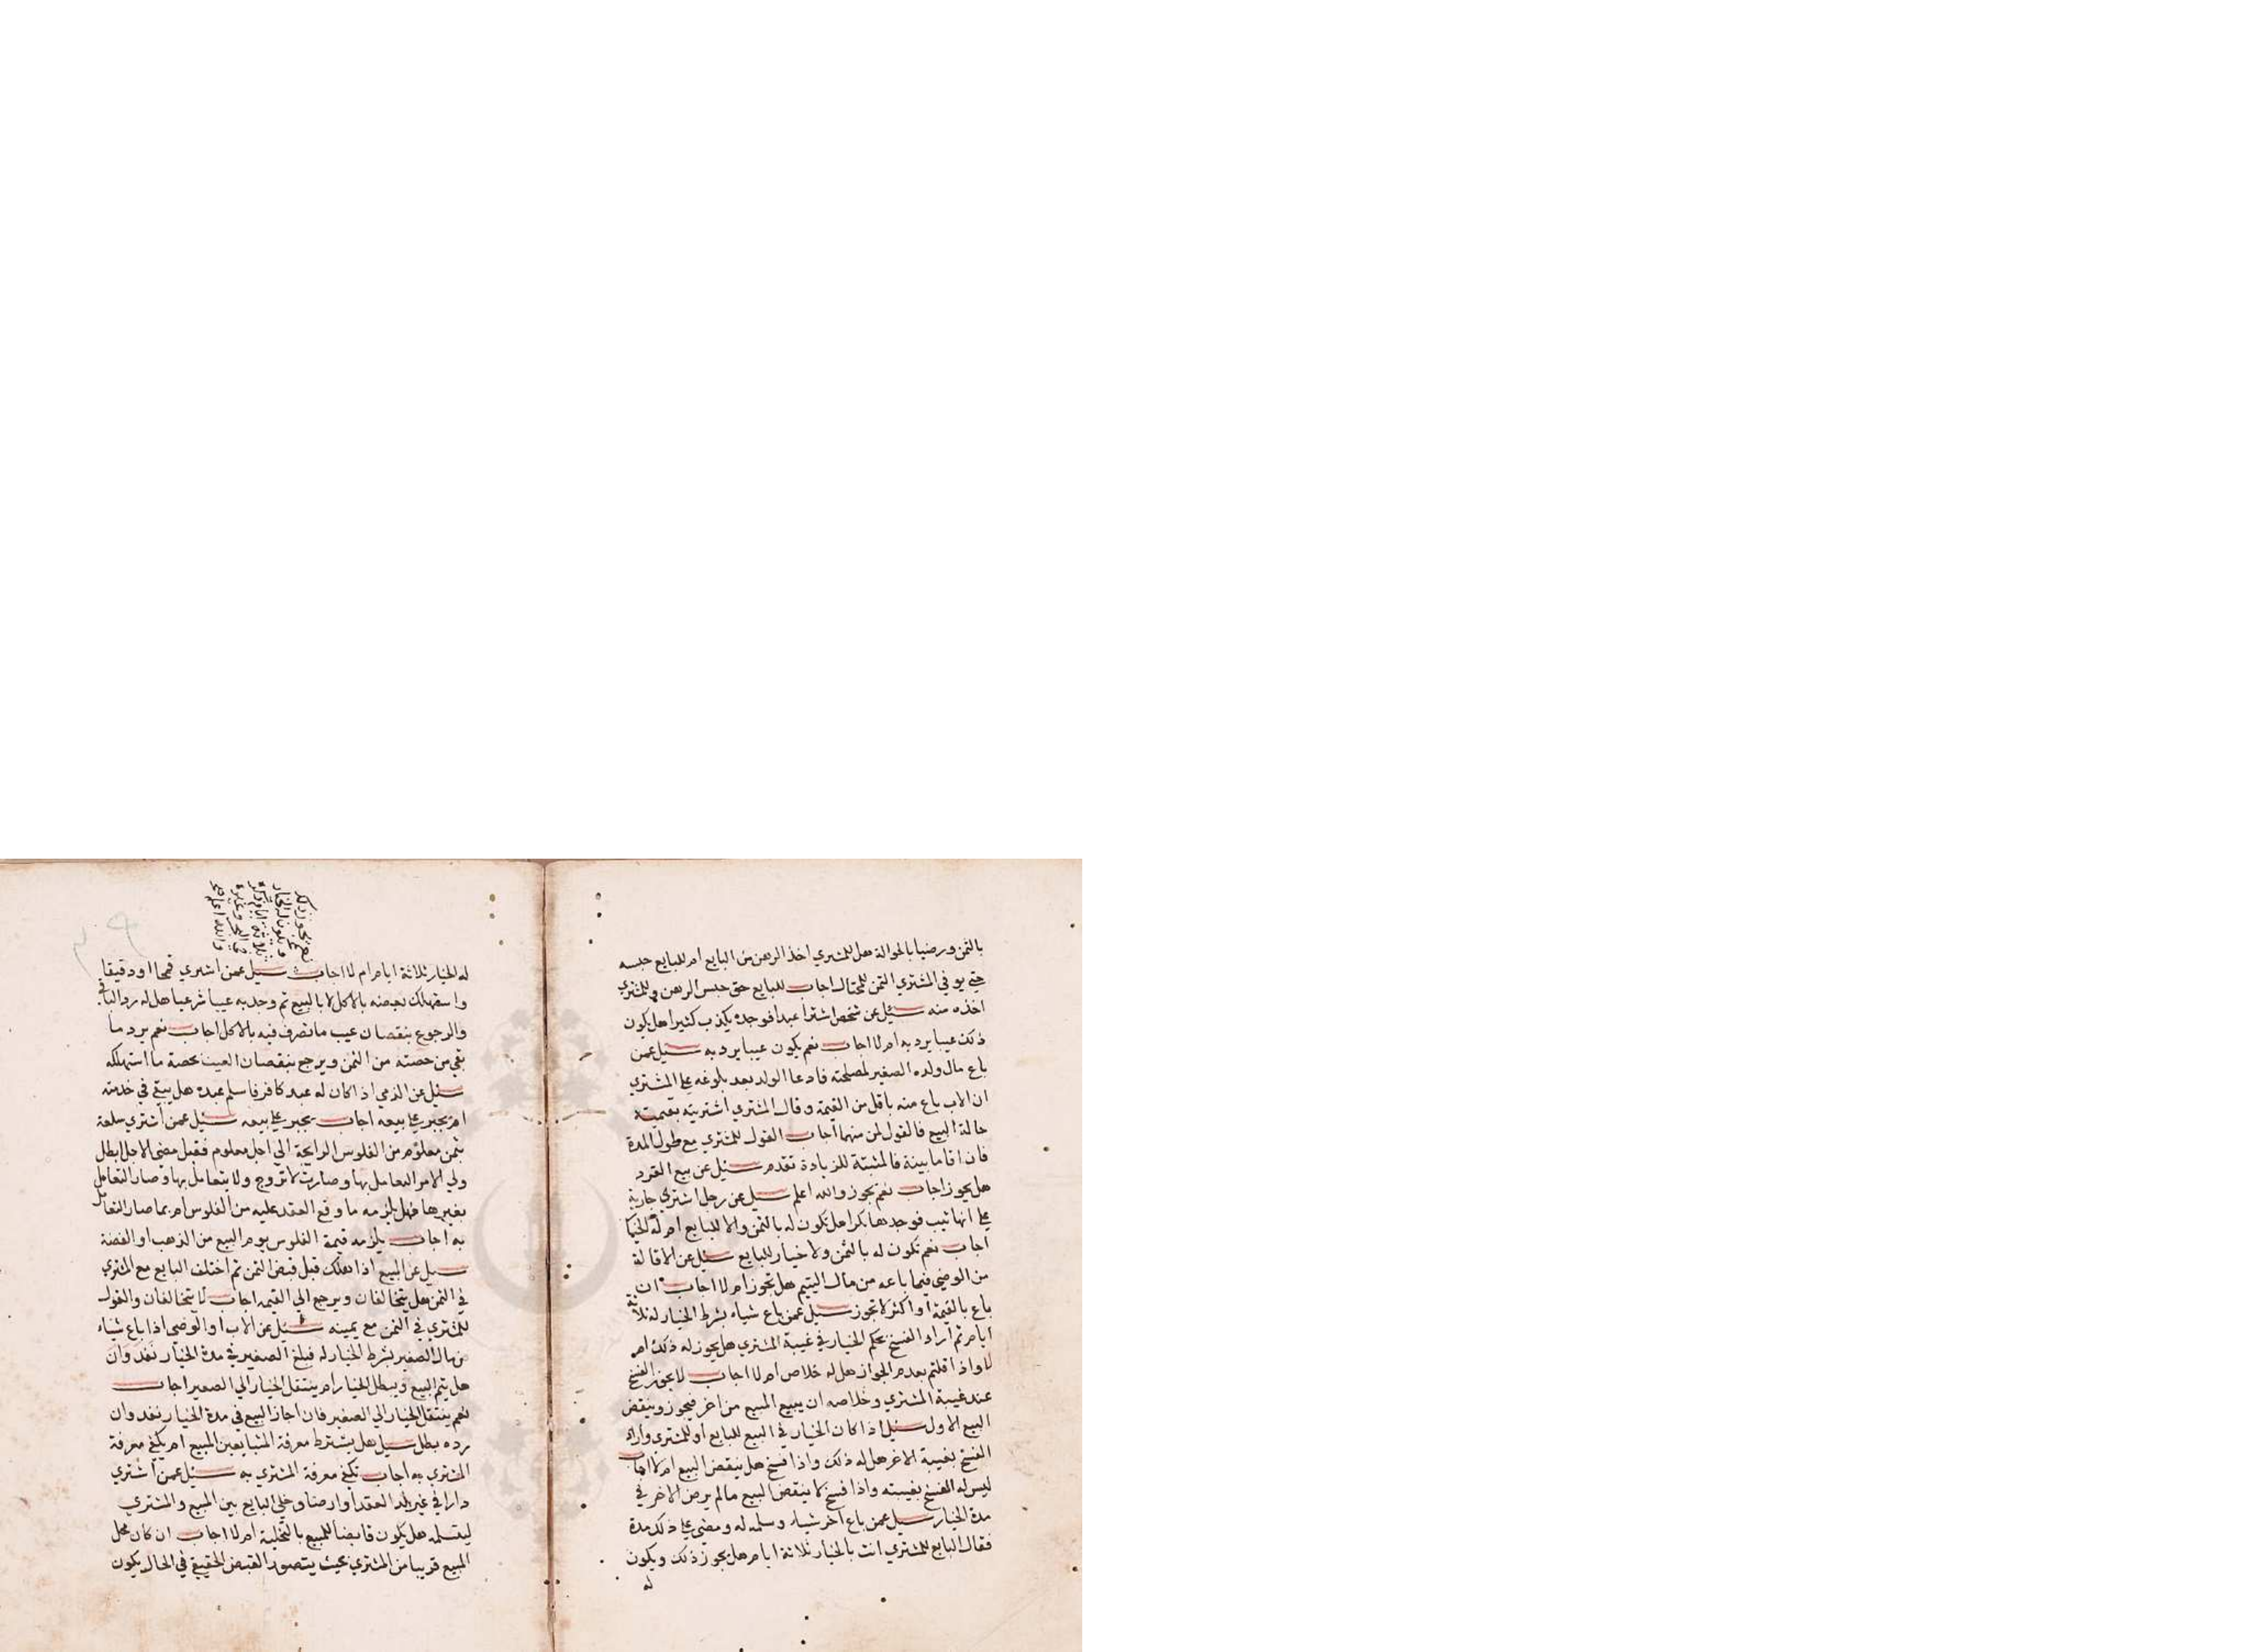 بالثمن ورضيا بالحوالة هل للمشتري اخذ الرهن من البايع ام للبايع حبسه
حتى يوفي المشتري الثمن للمحتال اجاب للبايع حق حبس الرهن وللمشتري
اخذه منه سئل عن شخص اشترا عبدا فوجده يكذب كثيرا هل يكون
ذلك عيبا يرد به ام لا اجاب نعم يكون عيبا يرد به سئل عمن
باع مال ولده الصغير لمصلحته فادعا الولد بعد بلوغه على المشتري
ان الاب باع منه باقل من القيمة وقال المشتري اشتريته بقيمته
حالة البيع فالقول لمن منهما اجاب القول للمشتري مع طول المدة
فان اقاما بينة فالمثبتة للزيادة تقدم سئل عن بيع القرد
هل يجوز اجاب نعم يجوز والله اعلم سئل عن رجل اشتري جارية
على انها ثيب فوجدها بكرا هل تكون له بالثمن والا للبايع ام له الخيار
اجاب نعم تكون له بالثمن ولا خيار للبايع سئل عن الاقالة
من الوصي فيما باعه من مال اليتيم هل تجوز ام لا اجاب ان
باع بالقيمة او اكثر لا تجوز سئل عمن باع شياه بشرط الخيار له ثلاثة
ايام ثم اراد الفسخ بحكم الخيار في غيبة المشتري هل يجوز له ذلك ام
لا واذا قلتم بعدم الجواز هل له خلاص ام لا اجاب لا يجوز الفسخ
عند غيبة المشتري وخلاصه ان يبيع المبيع من اخر فيجوز وينقض
البيع الاول سئل اذا كان الخيار في البيع للبايع او للمشتري واراد
الفسخ بغيبة الاخر هل له ذلك واذا فسخ هل ينقض البيع ام لا اجاب
ليس له الفسخ بغيبته واذا فسخ لا ينقض البيع مالم يرض الاخر في
مدة الخيار سئل عمن باع اخر شياه وسلمه له ومضى على ذلك مدة
فقال البايع للمشتري انت بالخيار ثلاثة ايام هل يجوز ذلك ويكون
له
نعم يجوز ذلك
ويكون له الخيار
ثلاثة ايام
والله اعلم
له الخيار ثلاثة ايام ام لا اجاب سئل عمن اشتري قمحا او دقيقا
واستهلك بعضه بالاكل لا بالبيع ثم وجد به عيبا شرعيا هل له رد الباقي
والرجوع بنقصان عيب ما تصرف فيه بالاكل اجاب نعم يرد ما
بقي من حصته من الثمن ويرجع بنقصان العيب بحصة ما استهلكه
سئل عن الذمي اذا كان له عبد كافر فاسلم عبده هل يبقى في خدمته
ام يجبر على بيعه اجاب يجبر على بيعه سئل عمن اشتري سلعة
بثمن معلوم من الفلوس الرايجة الى اجل معلوم فقبل مضي الاجل ابطل
ولي الامر التعامل بها وصارت لا تروج ولا يتعامل بها وصار التعامل
بغيرها فهل يلزمه ما وقع العقد عليه من الفلوس ام بما صار التعامل
به اجاب يلزمه قيمة الفلوس يوم البيع من الذهب او الفضة
سئل عن البيع اذا هلك قبل قبض الثمن ثم اختلف البايع مع المشتري
في الثمن هل يتخالفان ويرجع الى القيمه اجاب لا يتخالفان والقول
للمشتري في الثمن مع يمينه سئل عن الاب او الوصي اذا باع شياه
من مال الصغير بشرط الخيار له فبلغ الصغير في مدة الخيار نفد وان
هل يتم البيع ويبطل الخيار ام ينتقل الخيار الى الصغير اجاب
نعم ينتقل الخيار الى الصغير فان اجاز البيع في مدة الخيار نفد وان
رده بطل سئل هل يشترط معرفة المتبايعين المبيع ام يكفي معرفة
المشتري به اجاب تكفي معرفة المشتري به سئل عمن اشتري
دارا في غير بلد العقد او ارضا وخلي البايع بين المبيع والمشتري
ليتسلمه هل يكون قابضا للمبيع بالتخلية ام لا اجاب ان كان محل
المبيع قريبا من المشتري بحيث يتصور القبض الحقيقي في الحال يكون